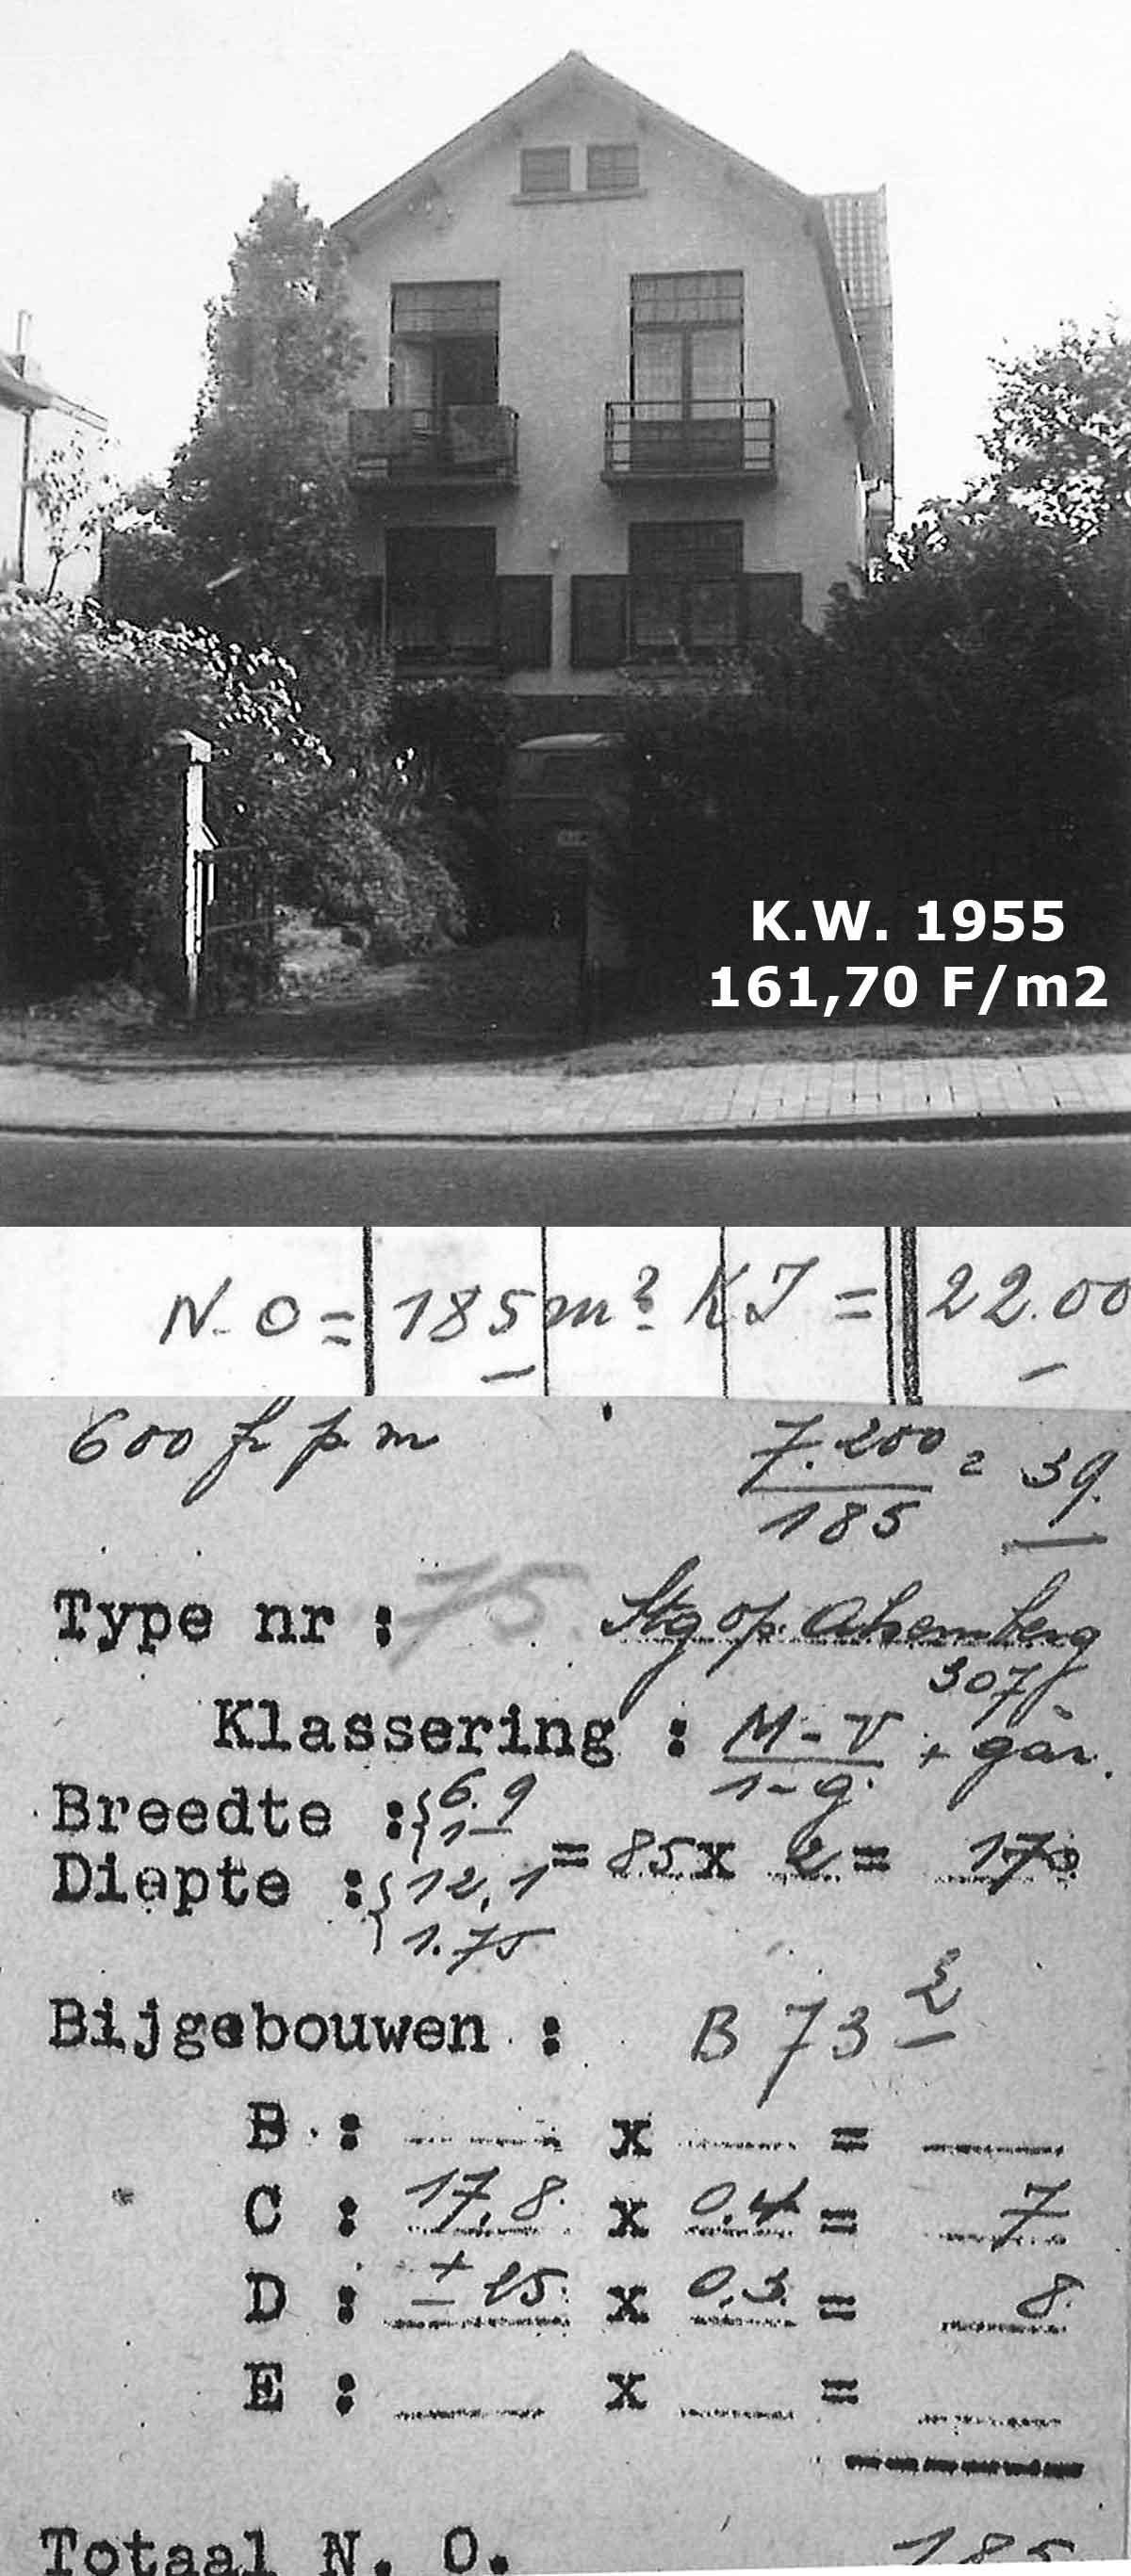 K.W. 1955
161,70 F/m2
N.O = 185 m² KI = 22.00
600 fr p m
7.200 / 185 = 39.
Type nr : 15. Stg op. Alsemberg
307
Klassering : M-V / 1-g. + gar.
Breedte : { 6.9
1-
= 85 x 2 = 170
Diepte : { 12,1
1.75
Bijgebouwen : B 73
B : x =
C : 17,8. x 0,4 = 7
D : ± 25. x 0,3. = 8.
E : x =
Totaal N. O. 185